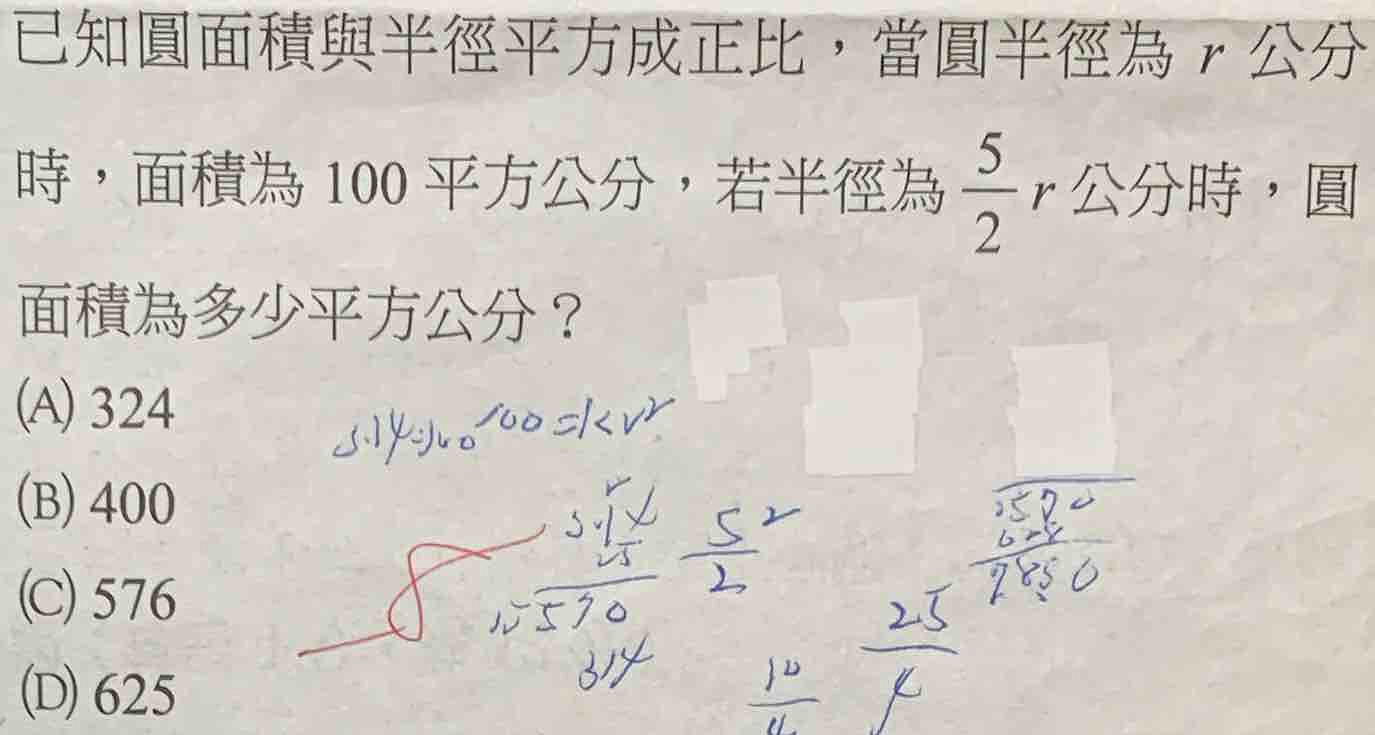 已知圓面積與半徑平方成正比，當圓半徑為 r 公分
時，面積為 100 平方公分，若半徑為 5/2 r 公分時，圓
面積為多少平方公分？
(A) 324
(B) 400
(C) 576
(D) 625
100=kr²
3.14
25
1570
314
5²/2
25/4
10/4
1570
628
7850